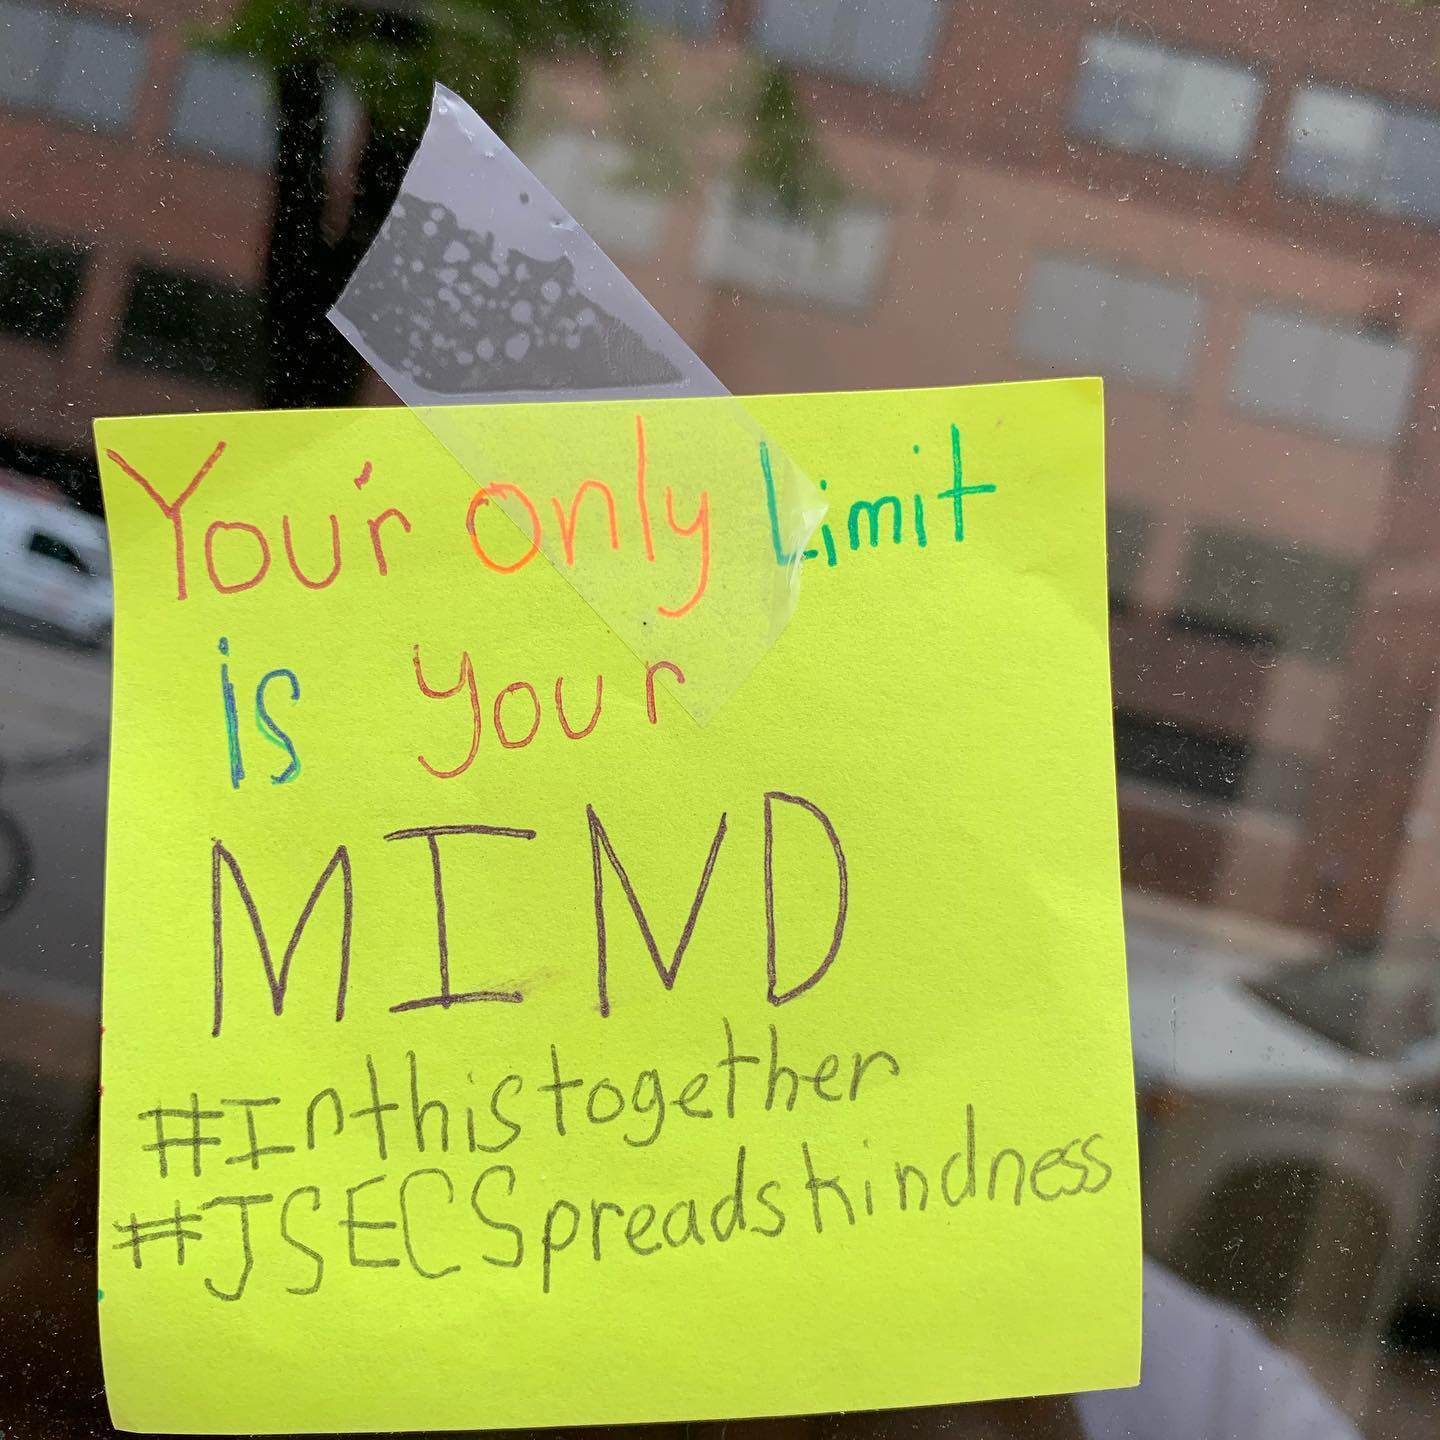 You'r only Limit
is your
MIND
#Inthistogether
#JSECSpreadskindness